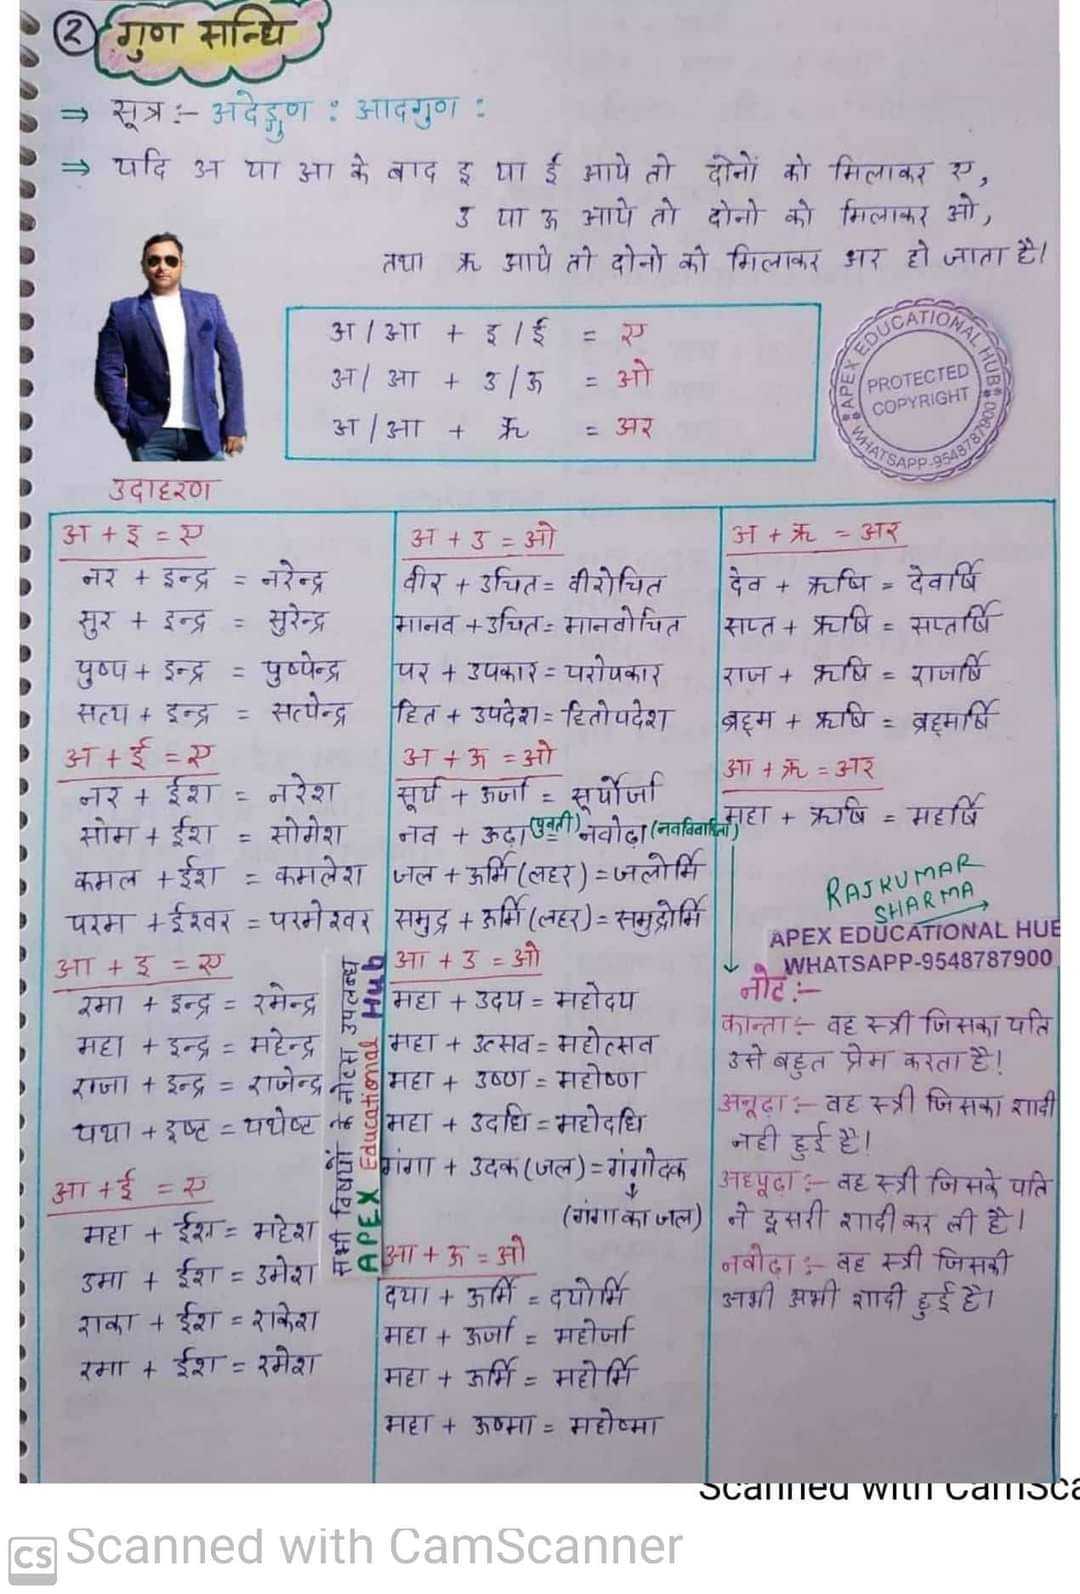 2 गुण सन्धि
⇒ सूत्र :- अदेङ्गुण : आदगुण :
⇒ यदि अ या आ के बाद इ या ई आये तो दोनों को मिलाकर ए,
उ या ऊ आये तो दोनो को मिलाकर ओ,
तथा ऋ आये तो दोनो को मिलाकर अर हो जाता है।
अ / आ + इ / ई = ए
अ / आ + उ / ऊ = ओ
अ / आ + ऋ = अर
APEX EDUCATIONAL HUB
PROTECTED
COPYRIGHT
WHATSAPP-9548787900
उदाहरण
अ + इ = ए
नर + इन्द्र = नरेन्द्र
सुर + इन्द्र = सुरेन्द्र
पुष्प + इन्द्र = पुष्पेन्द्र
सत्य + इन्द्र = सत्येन्द्र
अ + ई = ए
नर + ईश = नरेश
सोम + ईश = सोमेश
कमल + ईश = कमलेश
परम + ईश्वर = परमेश्वर
आ + इ = ए
रमा + इन्द्र = रमेन्द्र
महा + इन्द्र = महेन्द्र
राजा + इन्द्र = राजेन्द्र
यथा + इष्ट = यथेष्ट
आ + ई = ए
महा + ईश = महेश
उमा + ईश = उमेश
राका + ईश = राकेश
रमा + ईश = रमेश
सभी विषयों के नोट्स उपलब्ध
APEX Educational Hub
अ + उ = ओ
वीर + उचित = वीरोचित
मानव + उचित = मानवोचित
पर + उपकार = परोपकार
हित + उपदेश = हितोपदेश
अ + ऊ = ओ
सूर्य + ऊर्जा = सूर्योर्जा
नव + ऊढ़ा (युवती) = नवोढ़ा (नवविवाहिता)
जल + ऊर्मि (लहर) = जलोर्मि
समुद्र + ऊर्मि (लहर) = समुद्रोर्मि
आ + उ = ओ
महा + उदय = महोदय
महा + उत्सव = महोत्सव
महा + उष्ण = महोष्ण
महा + उदधि = महोदधि
गंगा + उदक (जल) = गंगोदक
(गंगा का जल)
आ + ऊ = ओ
दया + ऊर्मि = दयोर्मि
महा + ऊर्जा = महोर्जा
महा + ऊर्मि = महोर्मि
महा + ऊष्मा = महोष्मा
अ + ऋ = अर
देव + ऋषि = देवर्षि
सप्त + ऋषि = सप्तर्षि
राज + ऋषि = राजर्षि
ब्रह्म + ऋषि = ब्रह्मर्षि
आ + ऋ = अर
महा + ऋषि = महर्षि
RAJKUMAR
SHARMA
APEX EDUCATIONAL HUB
WHATSAPP-9548787900
नोट :-
कान्ता :- वह स्त्री जिसका पति
उसे बहुत प्रेम करता है!
अनूढ़ा :- वह स्त्री जिसका शादी
नही हुई है।
अध्यूढ़ा :- वह स्त्री जिसके पति
ने दूसरी शादी कर ली है।
नवोढ़ा :- वह स्त्री जिसकी
अभी अभी शादी हुई है।
Scanned with CamSca
CS Scanned with CamScanner